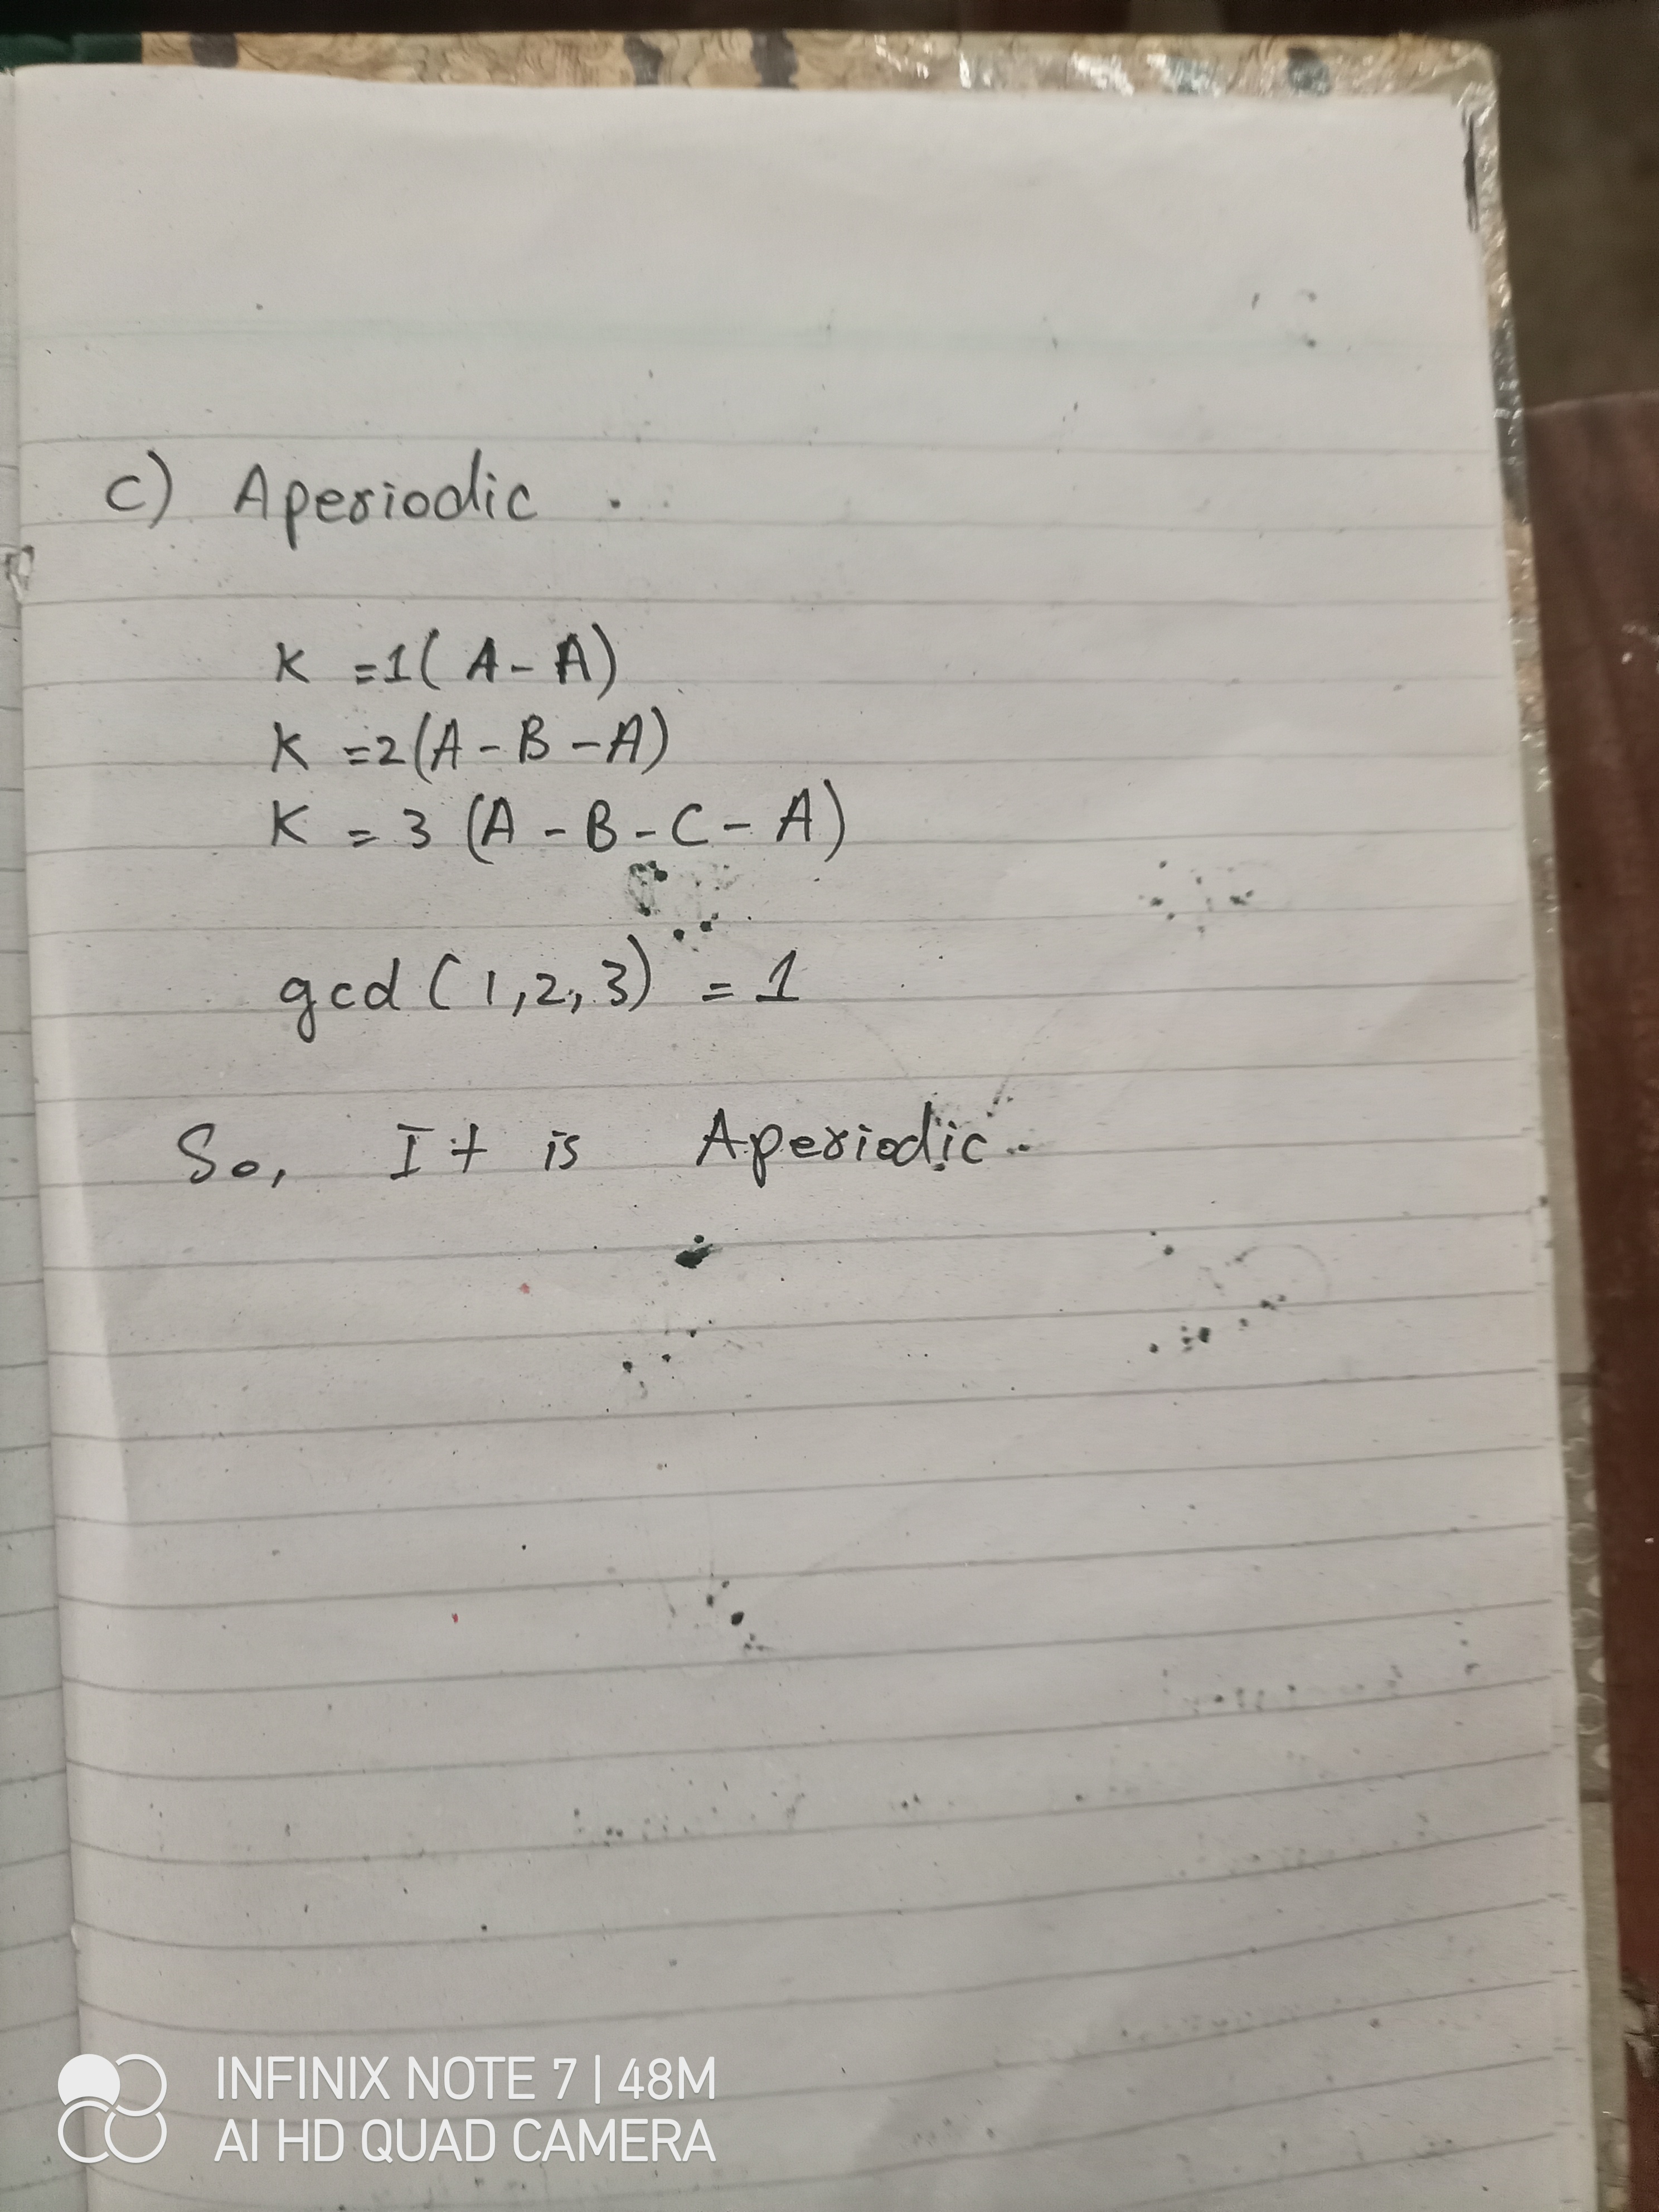 c) Aperiodic .
K =1( A - A)
K =2(A - B - A)
K = 3 (A - B - C - A)
gcd ( 1,2,3) = 1
So, It is Aperiodic.
INFINIX NOTE 7 | 48M
AI HD QUAD CAMERA